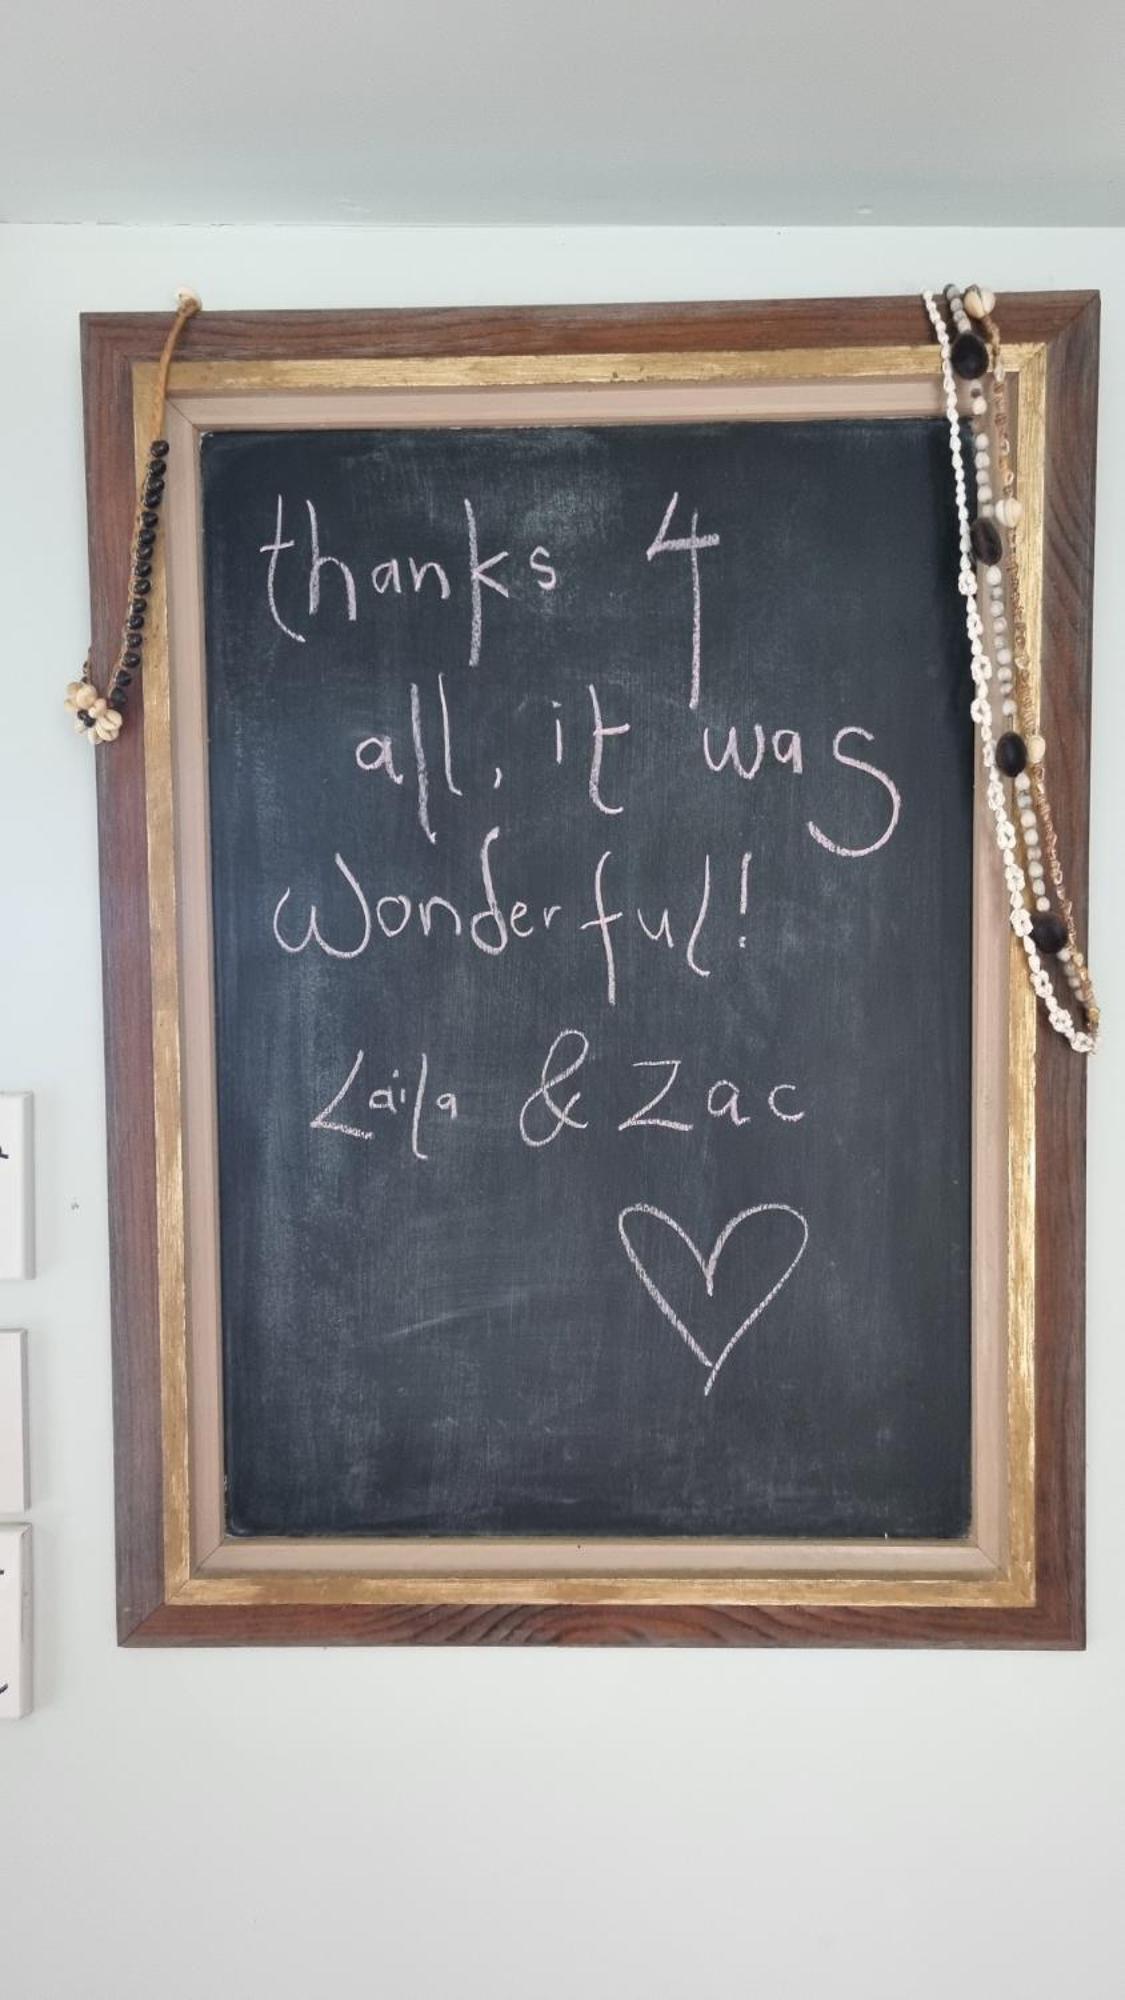 thanks 4
all, it was
Wonderful!
Laila & Zac